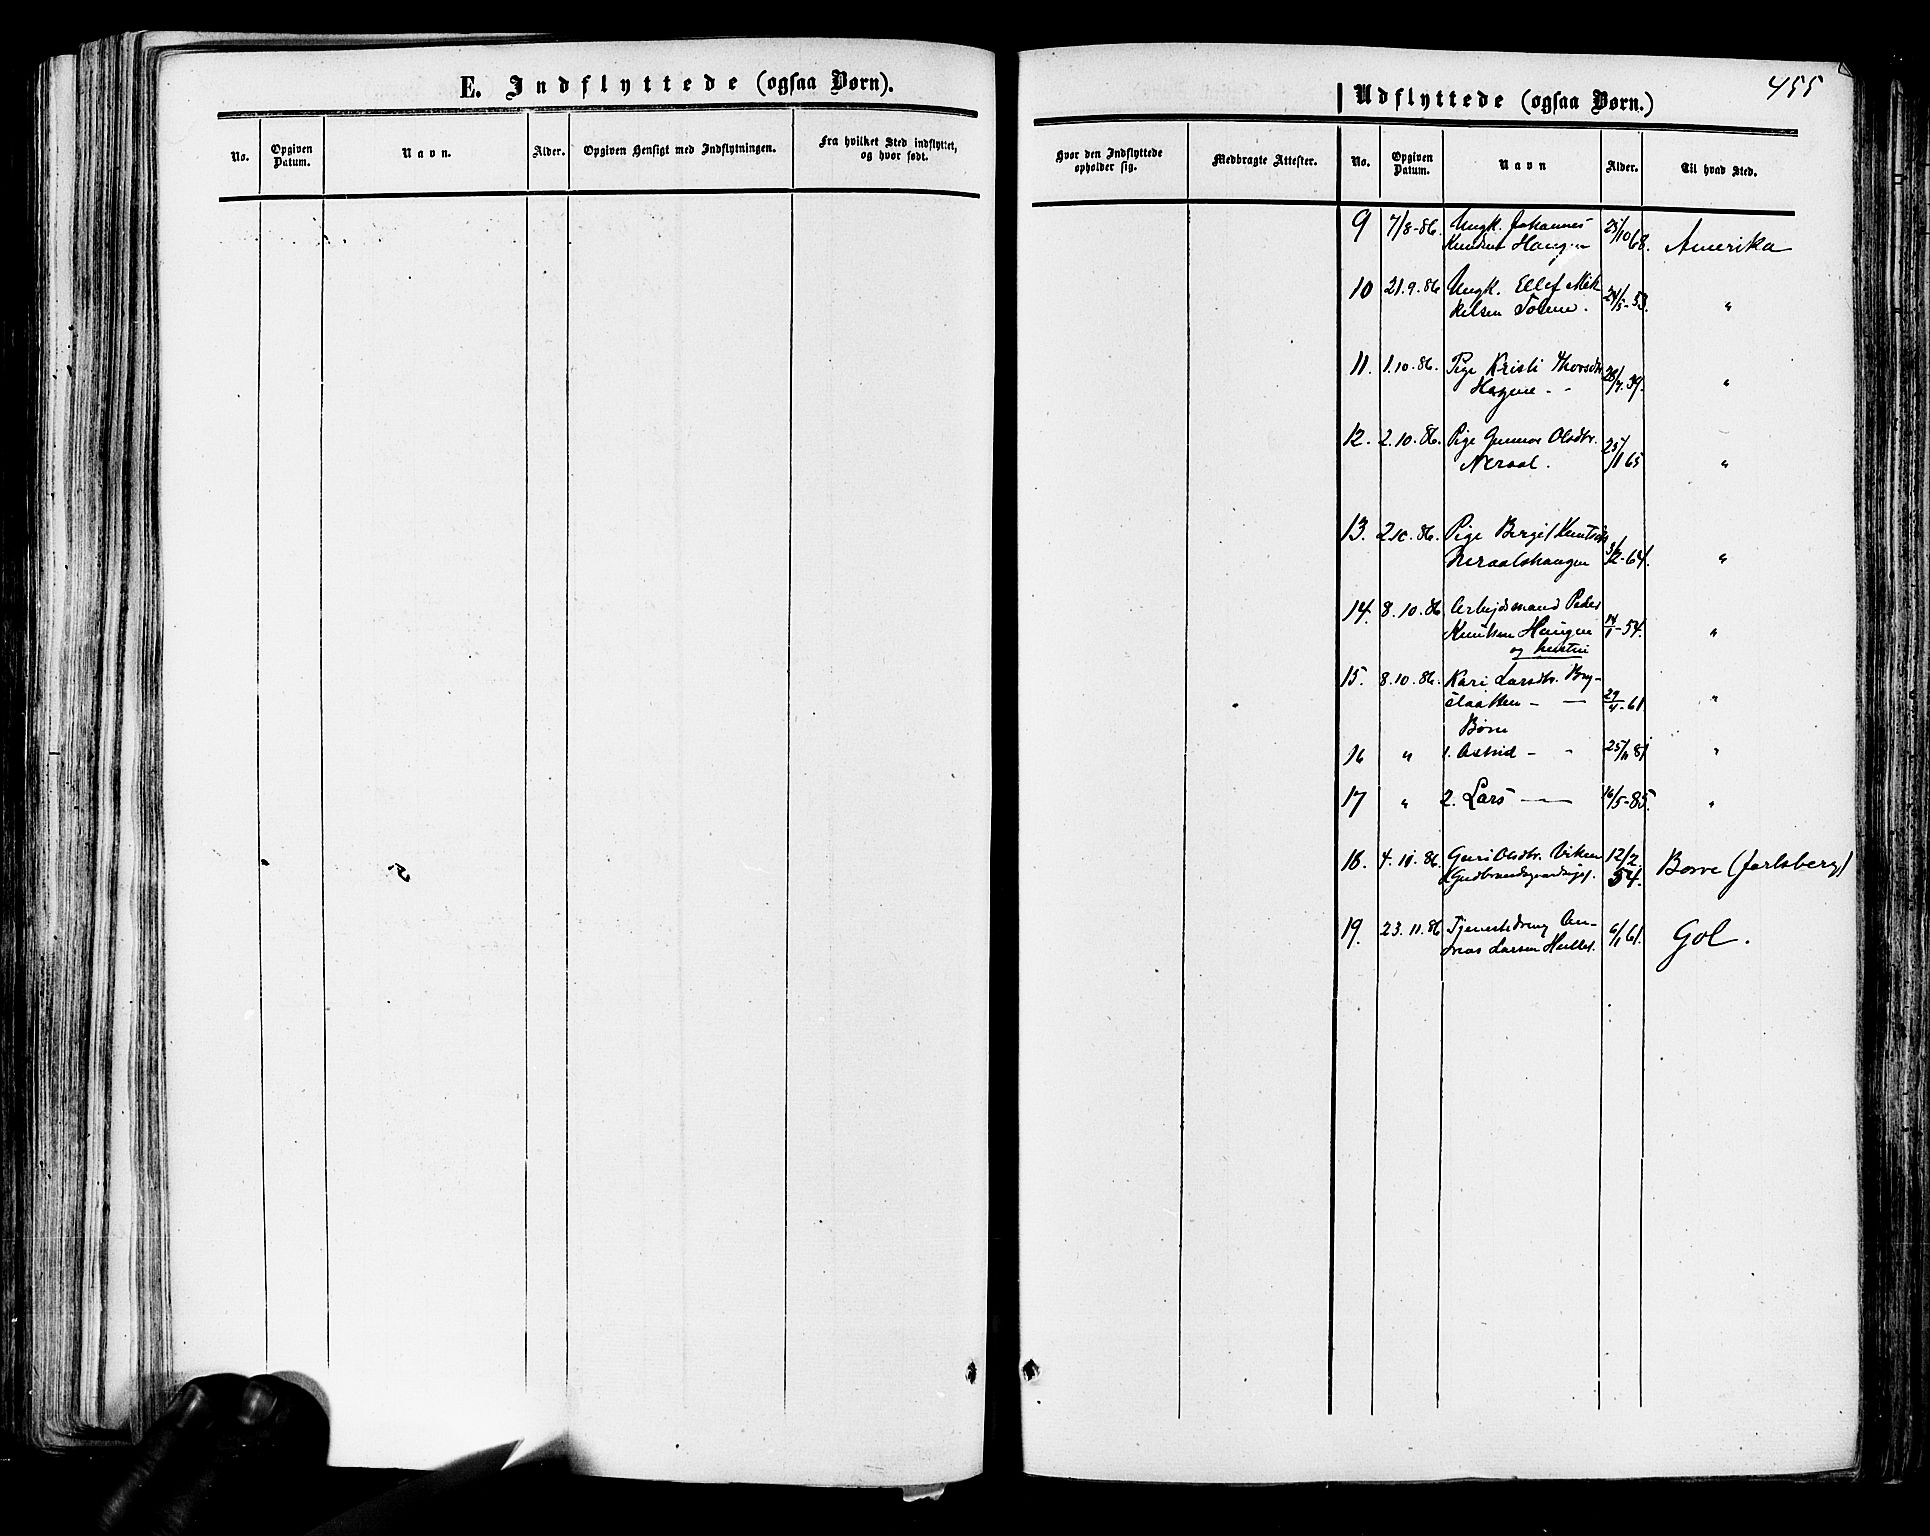 E. Indflyttede (ogsaa Børn).
No.
Opgiven Datum.
Navn.
Alder.
Opgiven Hensigt med Indflytningen.
Fra hvilket Sted indflyttet, og hvor født.
455
Udflyttede (ogsaa Børn.)
Hvor den Indflyttede opholder sig.
Medbragte Attester.
No.
Opgiven Datum.
Navn
Alder.
Til hvad Sted.
9 7/8-86. Ungk. Johannes 25/10 68. Amerika
Knudsen
10 21.9.86 Ungk. Ellef Mik- 24/5-53. "
kelsen
11. 1.10.86. Pige Kristi Thorsdtr. 39. "
Hagene - -
12. 2.10.86. Pige Gunnor Olsdtr. 25/1 65 "
Neraal.
13. 2.10.86. Pige Birgit Knutsdtr -64. "
Neraalshaugen
14. 8.10.86 Arbejdsmand Peder 14/1-54. "
Knutsen Haugen
og hustru
15. 8.10.86. Kari Larsdtr. 29/4-61 "
slaatten - -
Børn
16 " 1. Astrid - - 25/11 81 "
17 " 2. Lars - 16/5-85. "
18. 4.11.86 Guri Olsdtr. Viken 12/2 54. Borre (Jarlsberg)
19. 23.11.86 Tjenestedreng An- 6/1 61. Gol.
dreas Larsen